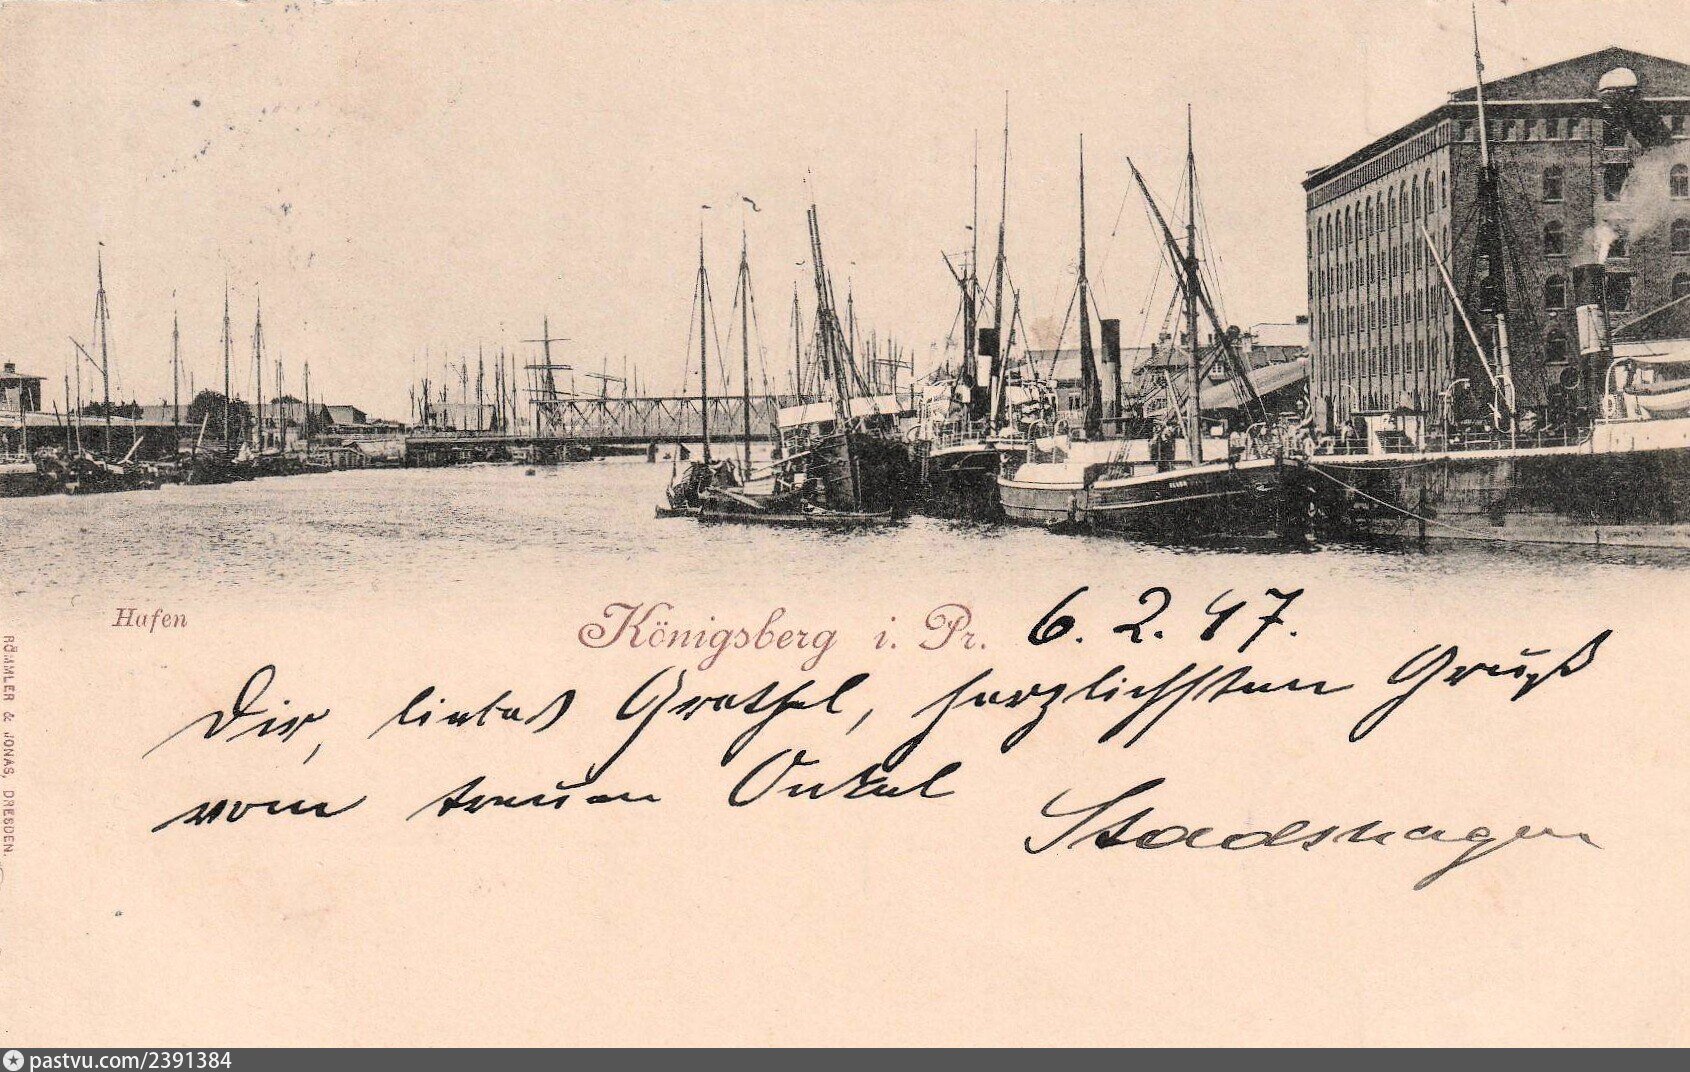 Hafen
Königsberg i. Pr. 6. 2. 97.
Dir, liebes Grethel, herzlichsten Gruß
vom treuen Onkel
Stadshagen
RÖMMLER & JONAS, DRESDEN.
pastvu.com/2391384